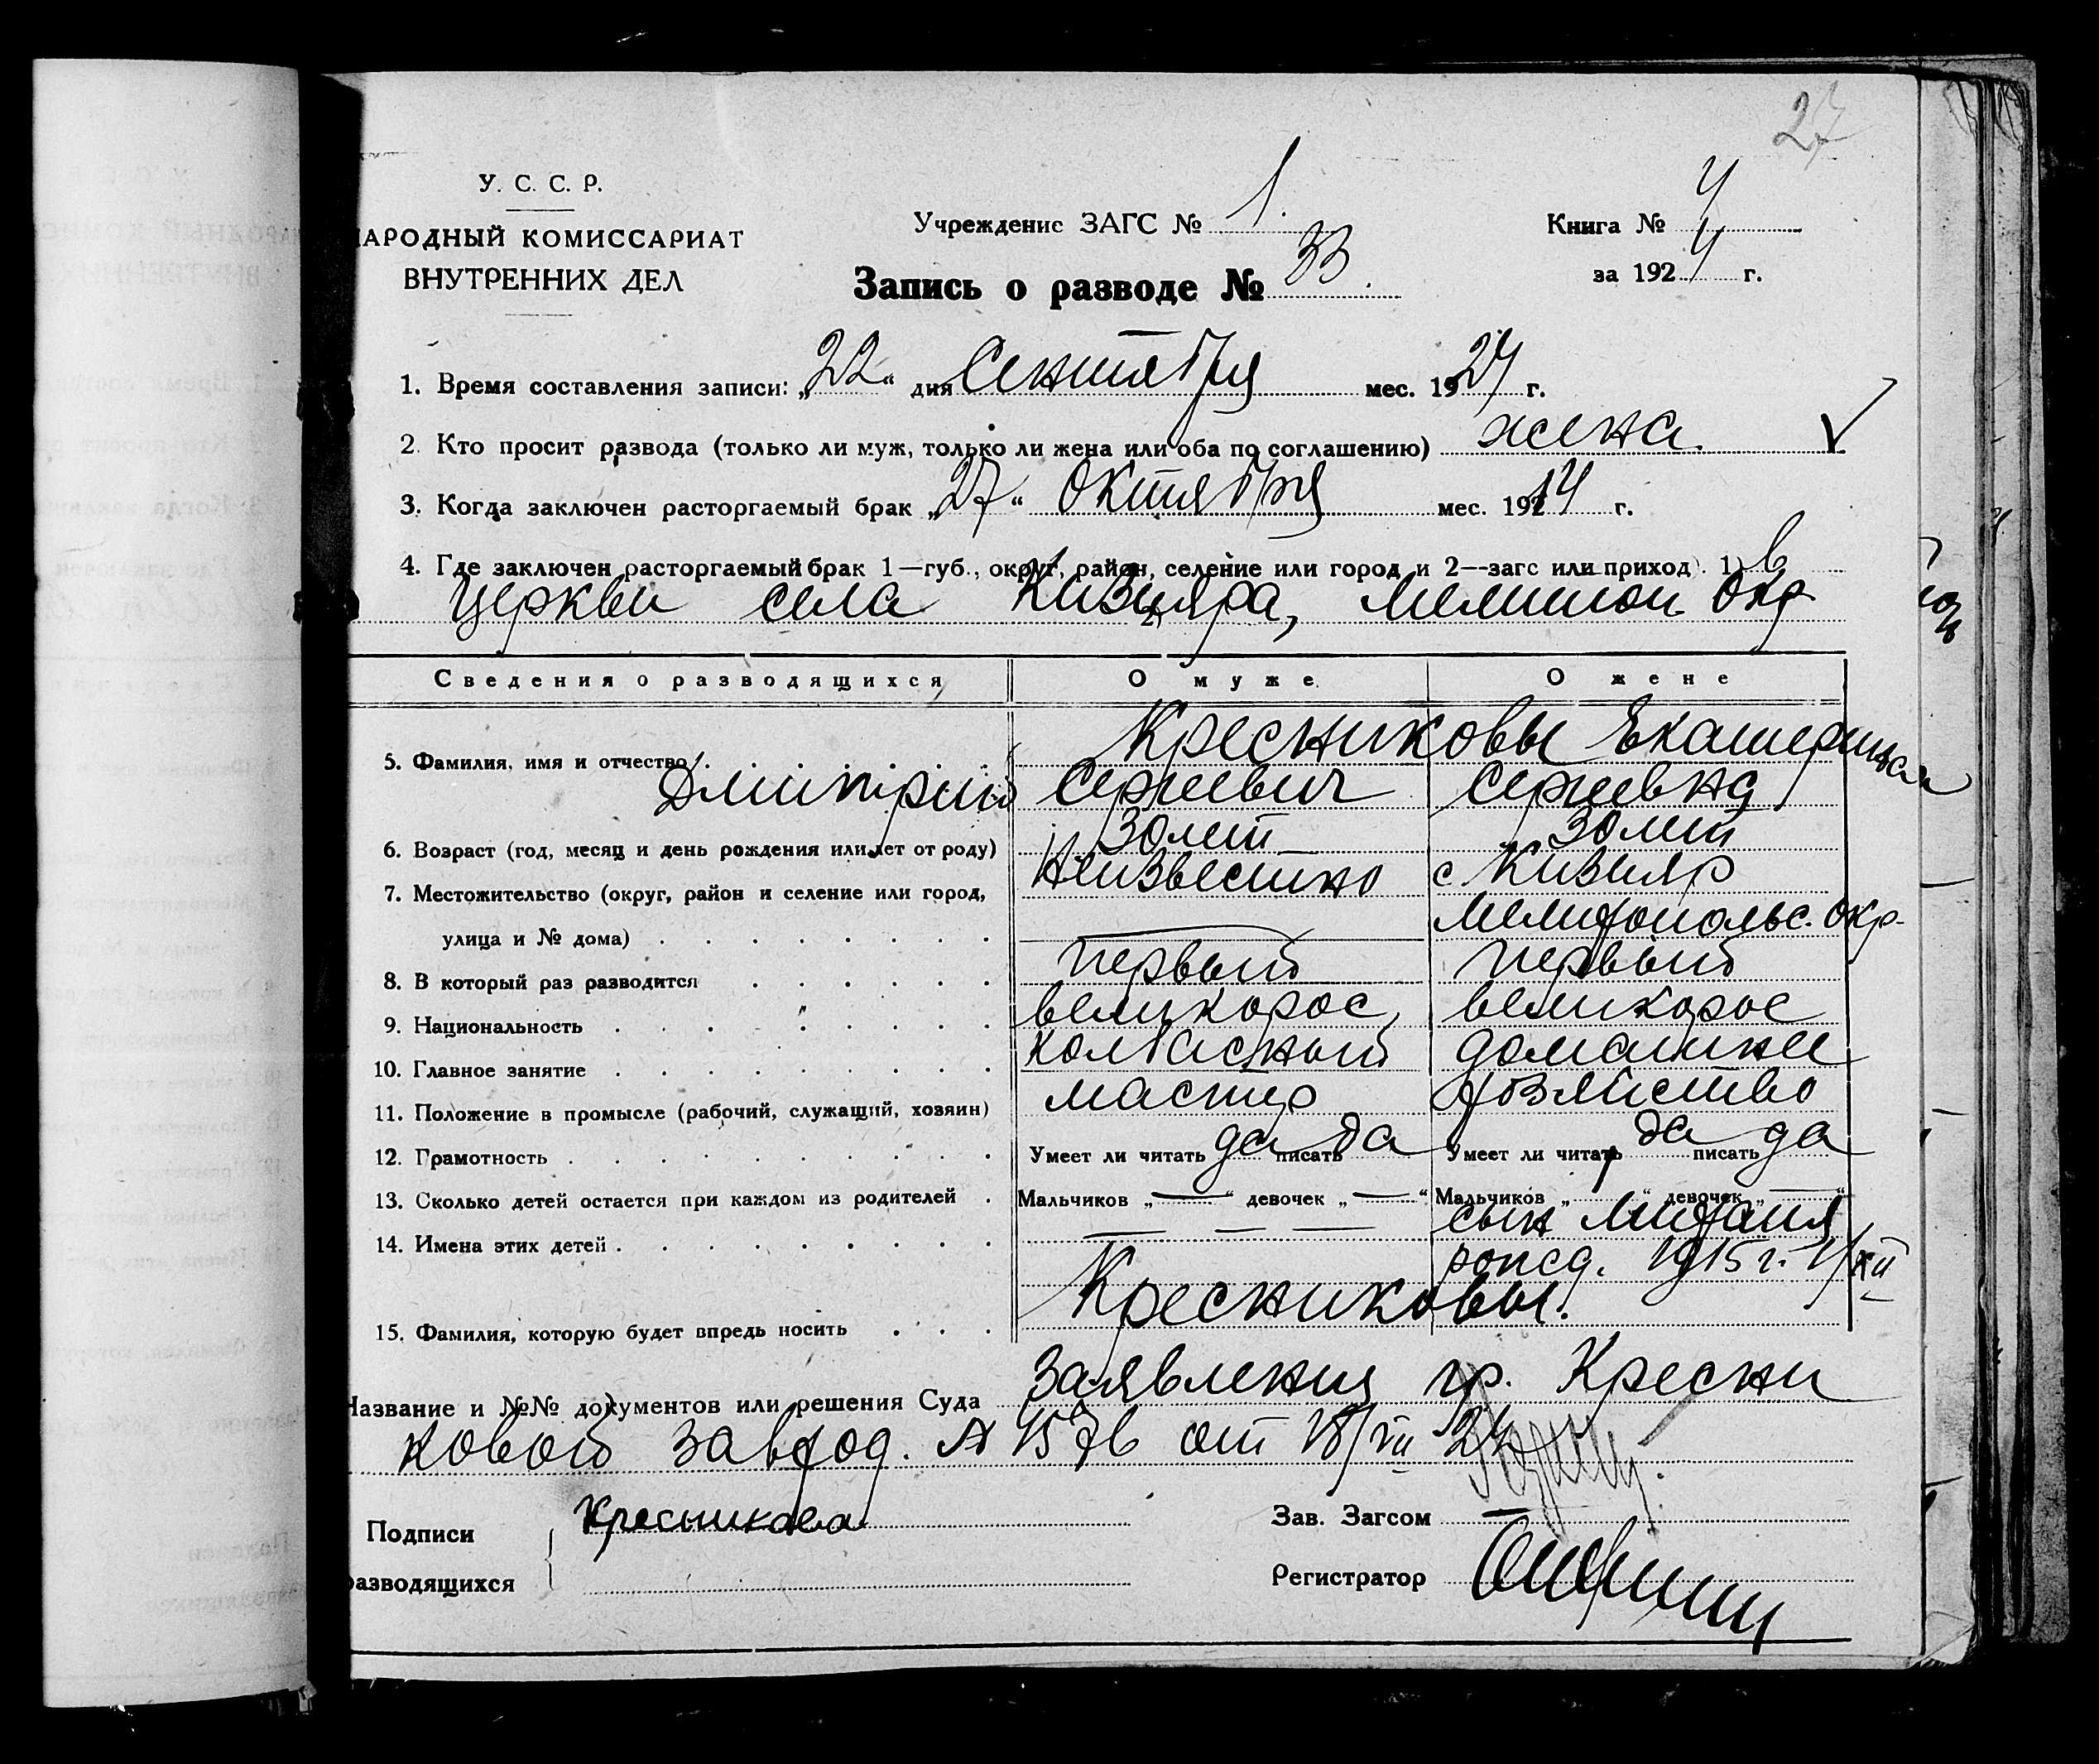 27
У. С. С. Р.
НАРОДНЫЙ КОМИССАРИАТ
ВНУТРЕННИХ ДЕЛ
Учреждение ЗАГС № 1.
Книга № 4
за 1924 г.
Запись о разводе № 33.
1. Время составления записи: „22“ дня Сентября мес. 1924 г.
2. Кто просит развода (только ли муж, только ли жена или оба по соглашению) жена.
3. Когда заключен расторгаемый брак „27“ октября мес. 1914 г.
4. Где заключен расторгаемый брак 1—губ., округ, район, селение или город и 2—загс или приход). 1) в
церкви села Кизияра, Мелитоп Окр
2)
Сведения о разводящихся О муже О жене
5. Фамилия, имя и отчество Кресниковы Екатерина
Дмитрий Сергеевич Сергеевна
6. Возраст (год, месяц и день рождения или лет от роду) 30 лет 30 лет
7. Местожительство (округ, район и селение или город, Неизвестно с Кизияр
улица и № дома) Мелитопольс. Окр-
8. В который раз разводится первый первый
9. Национальность великорос, великорос
10. Главное занятие колбасный домашнее
11. Положение в промысле (рабочий, служащий, хозяин) мастер хозяйство
12. Грамотность Умеет ли читать да писать да Умеет ли читать да писать да
13. Сколько детей остается при каждом из родителей Мальчиков „—“ девочек „—“ Мальчиков „1“ девочек „—“
14. Имена этих детей — — — сын Михаил
рожд. 1915 г. 1/XII
15. Фамилия, которую будет впредь носить Кресниковы.
Название и №№ документов или решения Суда Заявления гр. Кресни
ковой зав вход. № 1576 от 18/VII 24
Подписи Кресникова
разводящихся
Зав. Загсом
Регистратор